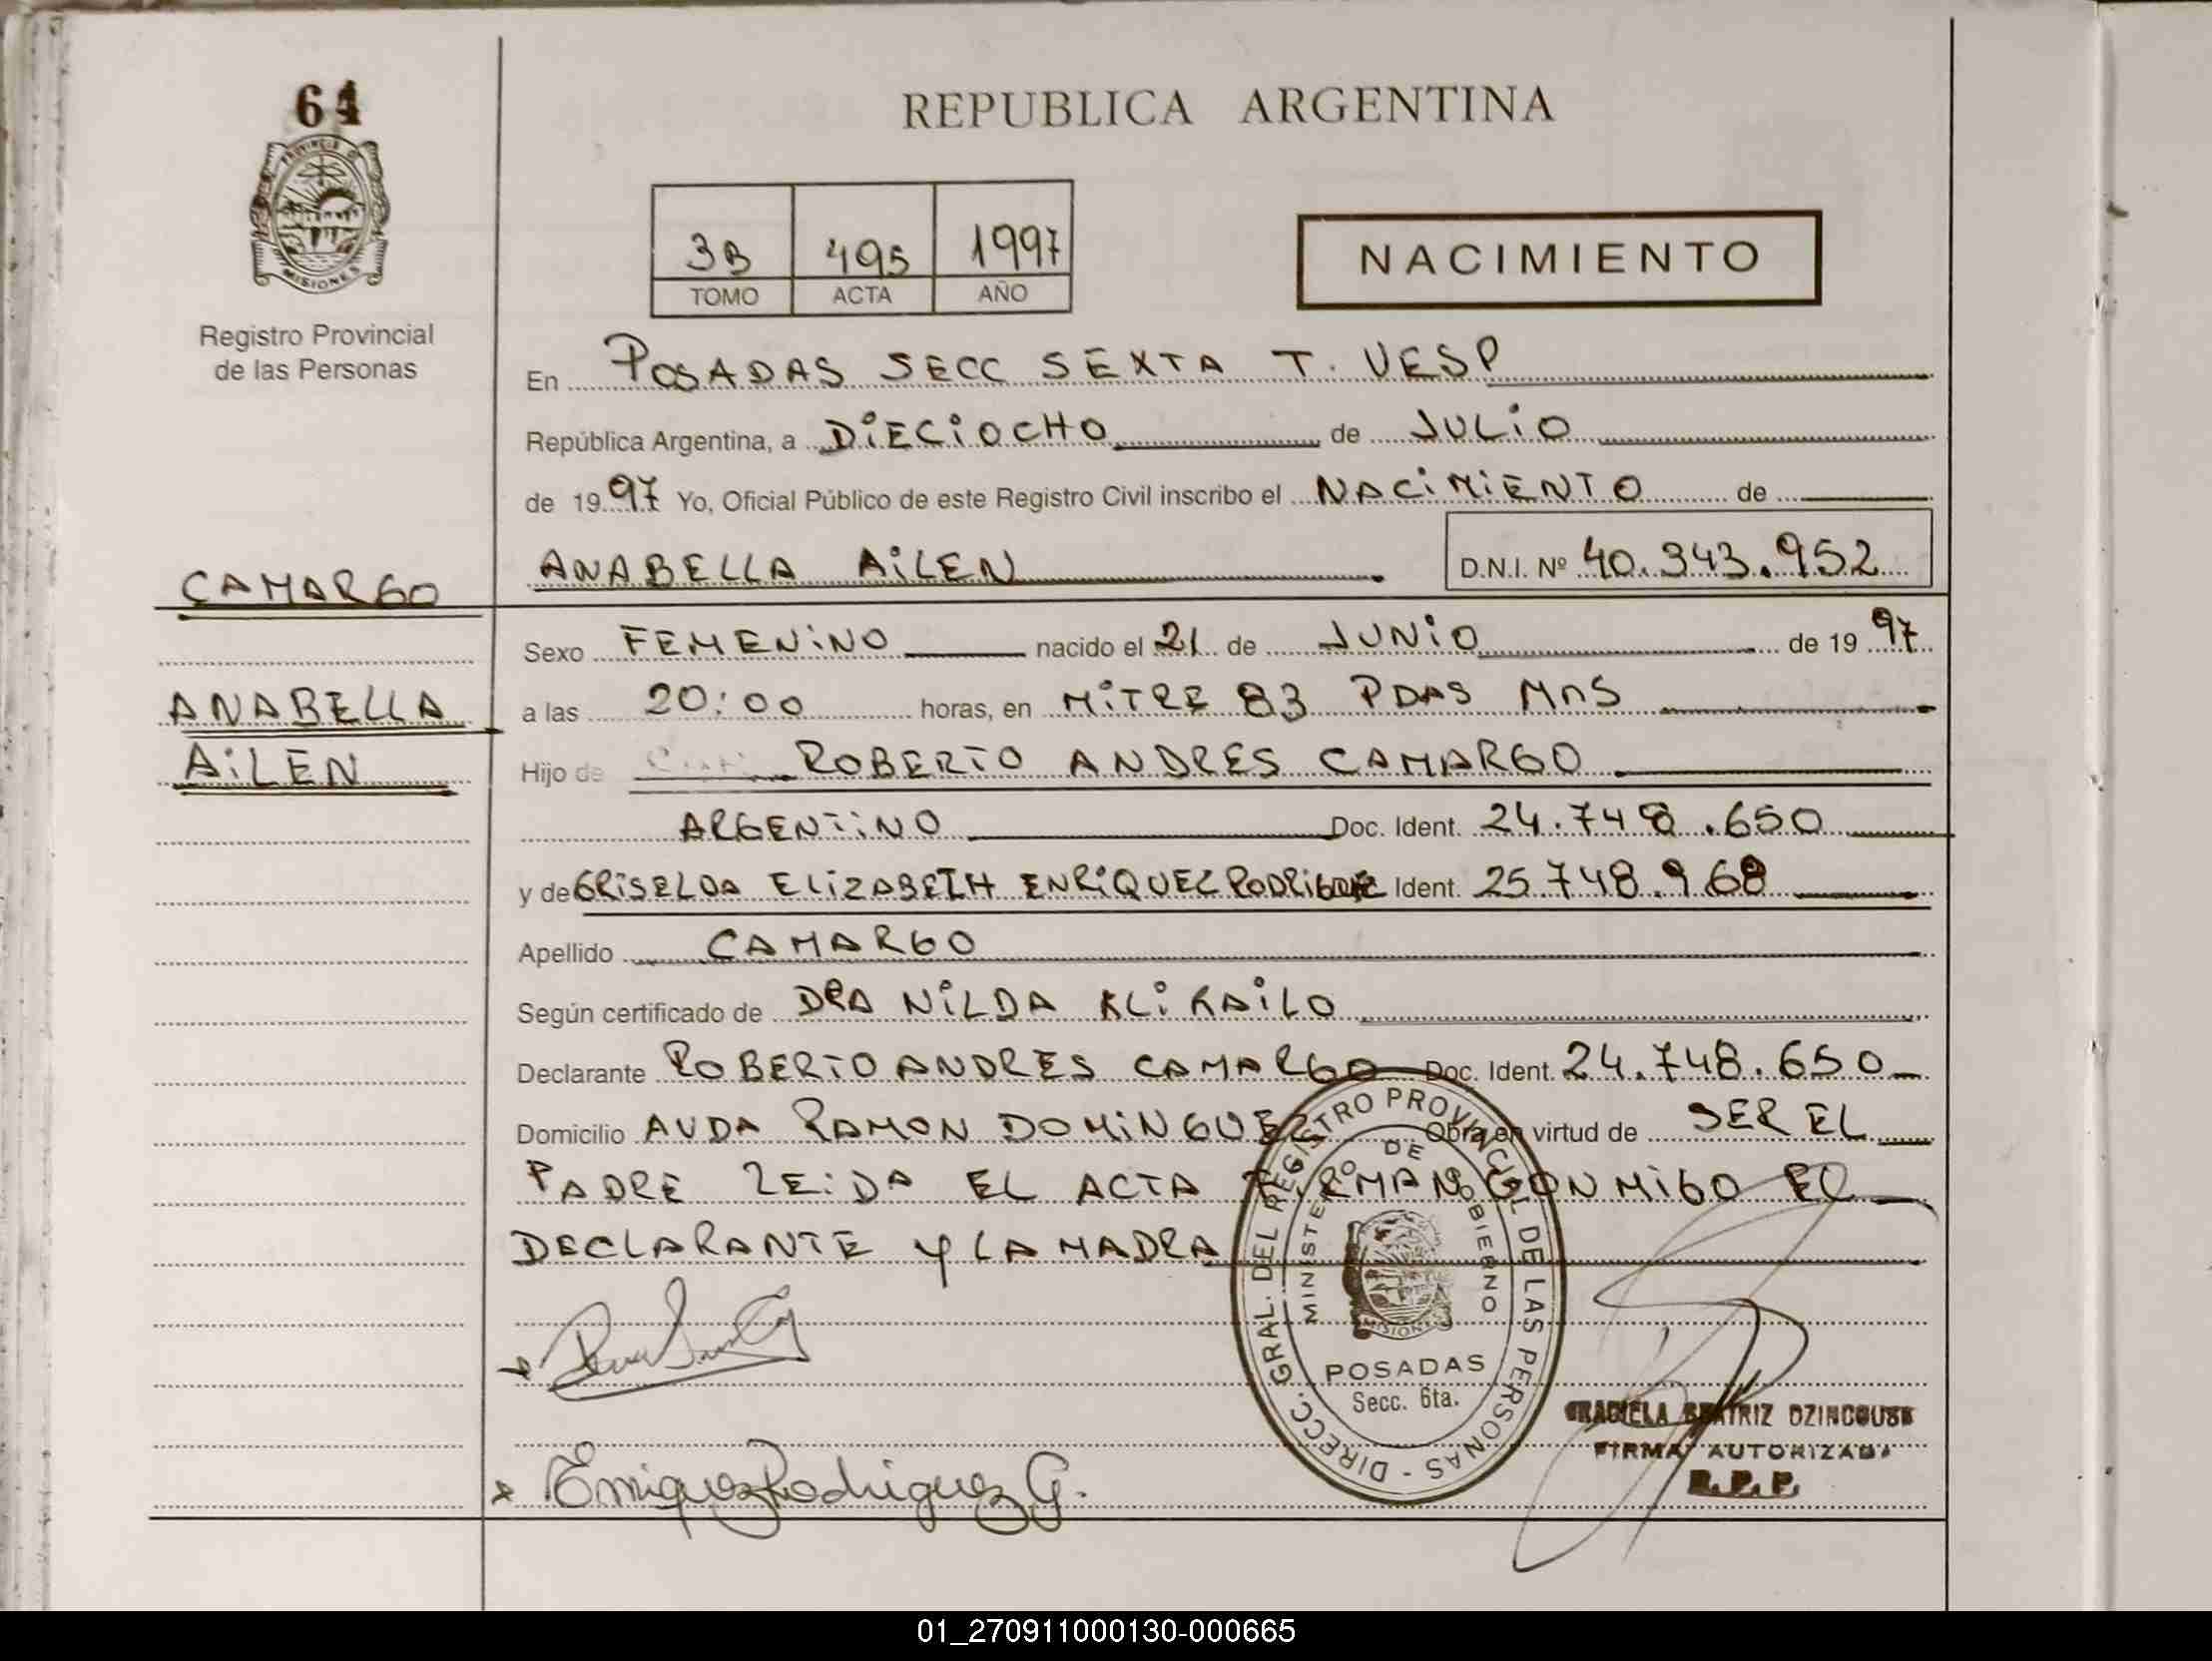 64
PROVINCIA DE
MISIONES
Registro Provincial
de las Personas
CAMARGO
ANABELLA
AiLEN
REPUBLICA ARGENTINA
3B 495 1997
TOMO ACTA AÑO
NACIMIENTO
En POSADAS SECC SEXTA T. VESP
República Argentina, a DiECiOCHO de JULiO
de 1997 Yo, Oficial Público de este Registro Civil inscribo el NACiMiENTO de
ANABELLA AiLEN D.N.I. Nº 40.343.952
Sexo FEMENiNO nacido el 21 de JUNiO de 1997
a las 20:00 horas, en MiTRE 83 PDAS MnS
Hijo de ROBERTO ANDRES CAMARGO
ARGENTiNO Doc. Ident. 24.748.650
y de GRiSELDA ELiZABETH ENRiQUEZ RODRiGUEZ Ident. 25.748.968
Apellido CAMARGO
Según certificado de DRA NiLDA
Declarante ROBERTO ANDRES CAMARGO Doc. Ident. 24.748.650
Domicilio AVDA RAMON DOMiNGUEZ Obra en virtud de SER EL
PADRE LEiDA EL ACTA FiRMAN CONMiGO EL
DECLARANTE Y LA MADRA
DIRECC. GRAL. DEL REGISTRO PROVINCIAL DE LAS PERSONAS -
MINISTERIO DE GOBIERNO
MISIONES
POSADAS
Secc. 6ta.
GRACIELA BEATRIZ DZINCOUSK
FIRMA AUTORIZADA
R.P.P.
Enriquez Rodriguez G.
01_270911000130-000665